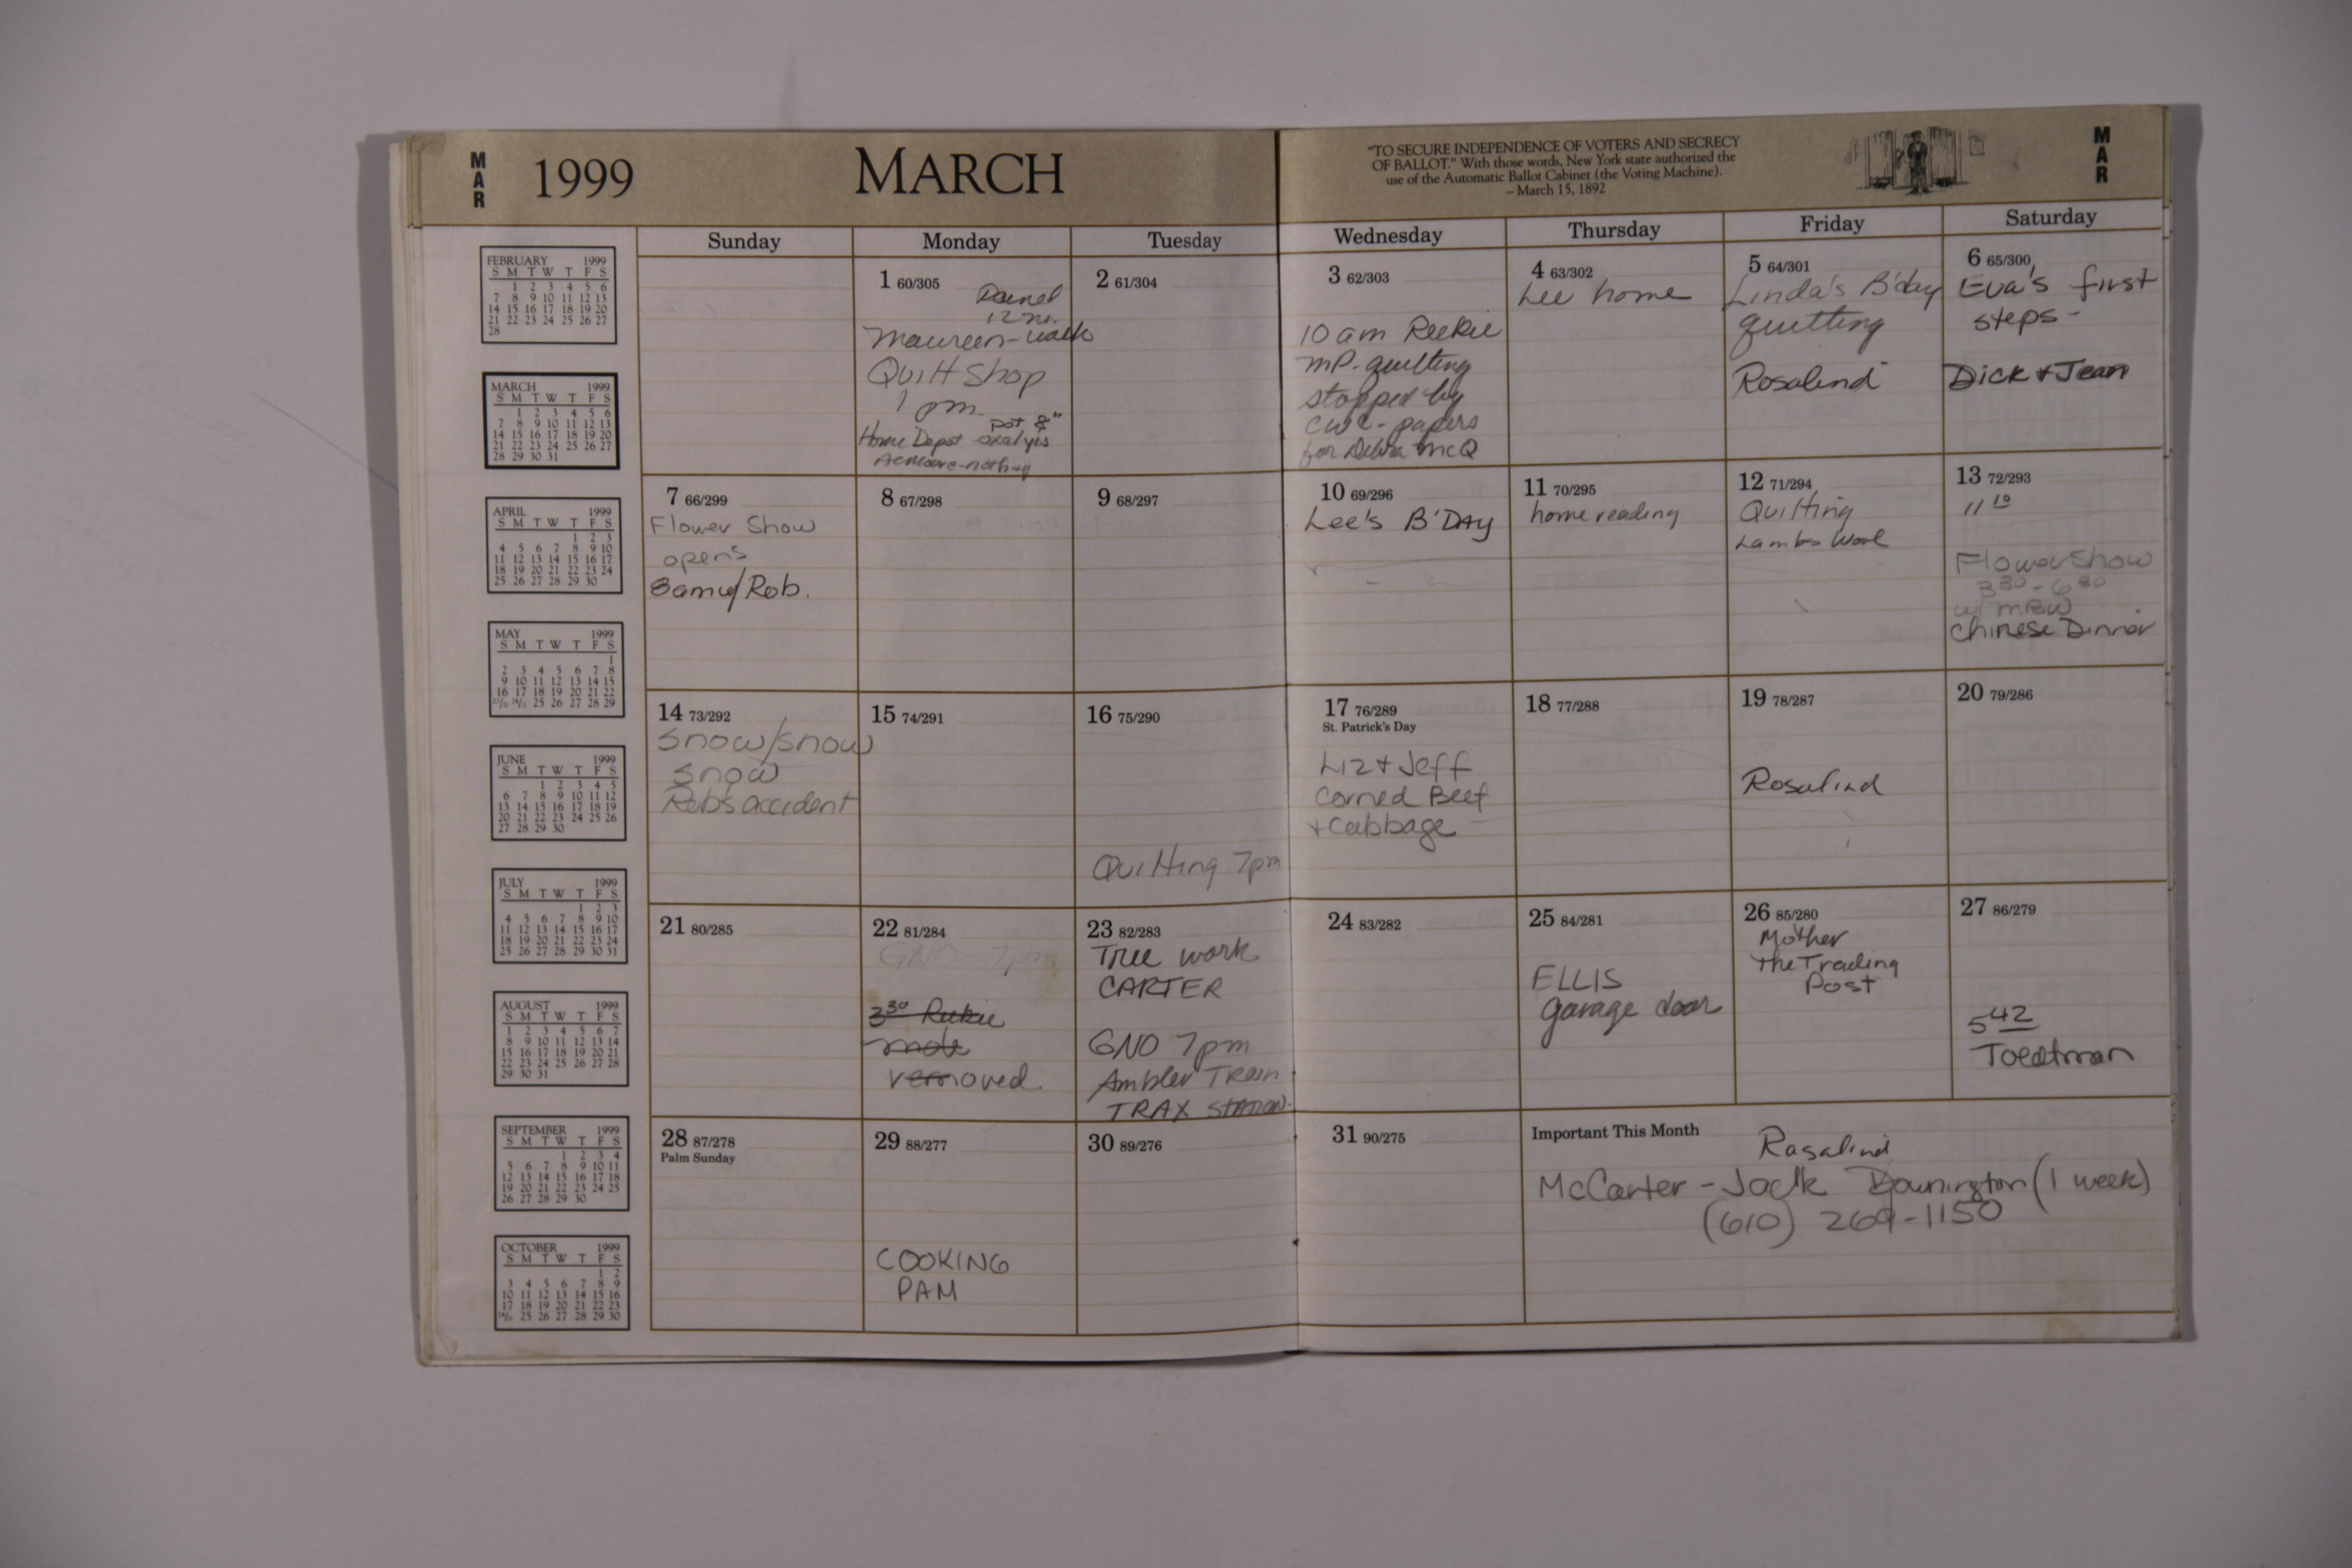 MAR
1999
MARCH
"TO SECURE INDEPENDENCE OF VOTERS AND SECRECY
OF BALLOT." With those words, New York state authorized the
use of the Automatic Ballot Cabinet (the Voting Machine).
– March 15, 1892
MAR
Sunday Monday Tuesday Wednesday Thursday Friday Saturday
1 60/305
12
Maureen-walk
Quilt Shop
1 pm
pot 8"
Home Depot oxalyis
nothing
2 61/304
3 62/303
10 am Reekie
MP. quilting
stopped by
CWC - papers
for Debra McQ
4 63/302
Lee home
5 64/301
Linda's B'day
quilting
Rosalind
6 65/300
Eva's first
steps -
Dick + Jean
7 66/299
Flower Show
opens
8am w/Rob.
8 67/298
9 68/297
10 69/296
Lee's B'DAY
11 70/295
home reading
12 71/294
Quilting
Lambs Wool
13 72/293
11 10
Flower Show
3 30 - 6 30
w/ MBW
Chinese Dinner
14 73/292
Snow/snow
snow
Rob's accident
15 74/291
16 75/290
Quilting 7pm
17 76/289
St. Patrick's Day
Liz + Jeff
Corned Beef
+ Cabbage
18 77/288
19 78/287
Rosalind
20 79/286
21 80/285
22 81/284
GNO 7pm
3 30 Reekie
mole
removed.
23 82/283
Tree work
CARTER
GNO 7pm
Ambler Train
TRAX STATION.
24 83/282
25 84/281
ELLIS
garage door
26 85/280
Mother
The Trading
Post
27 86/279
5 42
Toedtman
28 87/278
Palm Sunday
29 88/277
COOKING
PAM
30 89/276
31 90/275
Important This Month
Rosalind
McCarter - Jack Downington (1 week)
(610) 269-1150
FEBRUARY 1999
S M T W T F S
1 2 3 4 5 6
7 8 9 10 11 12 13
14 15 16 17 18 19 20
21 22 23 24 25 26 27
28
MARCH 1999
S M T W T F S
1 2 3 4 5 6
7 8 9 10 11 12 13
14 15 16 17 18 19 20
21 22 23 24 25 26 27
28 29 30 31
APRIL 1999
S M T W T F S
1 2 3
4 5 6 7 8 9 10
11 12 13 14 15 16 17
18 19 20 21 22 23 24
25 26 27 28 29 30
MAY 1999
S M T W T F S
1
2 3 4 5 6 7 8
9 10 11 12 13 14 15
16 17 18 19 20 21 22
23/30 24/31 25 26 27 28 29
JUNE 1999
S M T W T F S
1 2 3 4 5
6 7 8 9 10 11 12
13 14 15 16 17 18 19
20 21 22 23 24 25 26
27 28 29 30
JULY 1999
S M T W T F S
1 2 3
4 5 6 7 8 9 10
11 12 13 14 15 16 17
18 19 20 21 22 23 24
25 26 27 28 29 30 31
AUGUST 1999
S M T W T F S
1 2 3 4 5 6 7
8 9 10 11 12 13 14
15 16 17 18 19 20 21
22 23 24 25 26 27 28
29 30 31
SEPTEMBER 1999
S M T W T F S
1 2 3 4
5 6 7 8 9 10 11
12 13 14 15 16 17 18
19 20 21 22 23 24 25
26 27 28 29 30
OCTOBER 1999
S M T W T F S
1 2
3 4 5 6 7 8 9
10 11 12 13 14 15 16
17 18 19 20 21 22 23
24/31 25 26 27 28 29 30